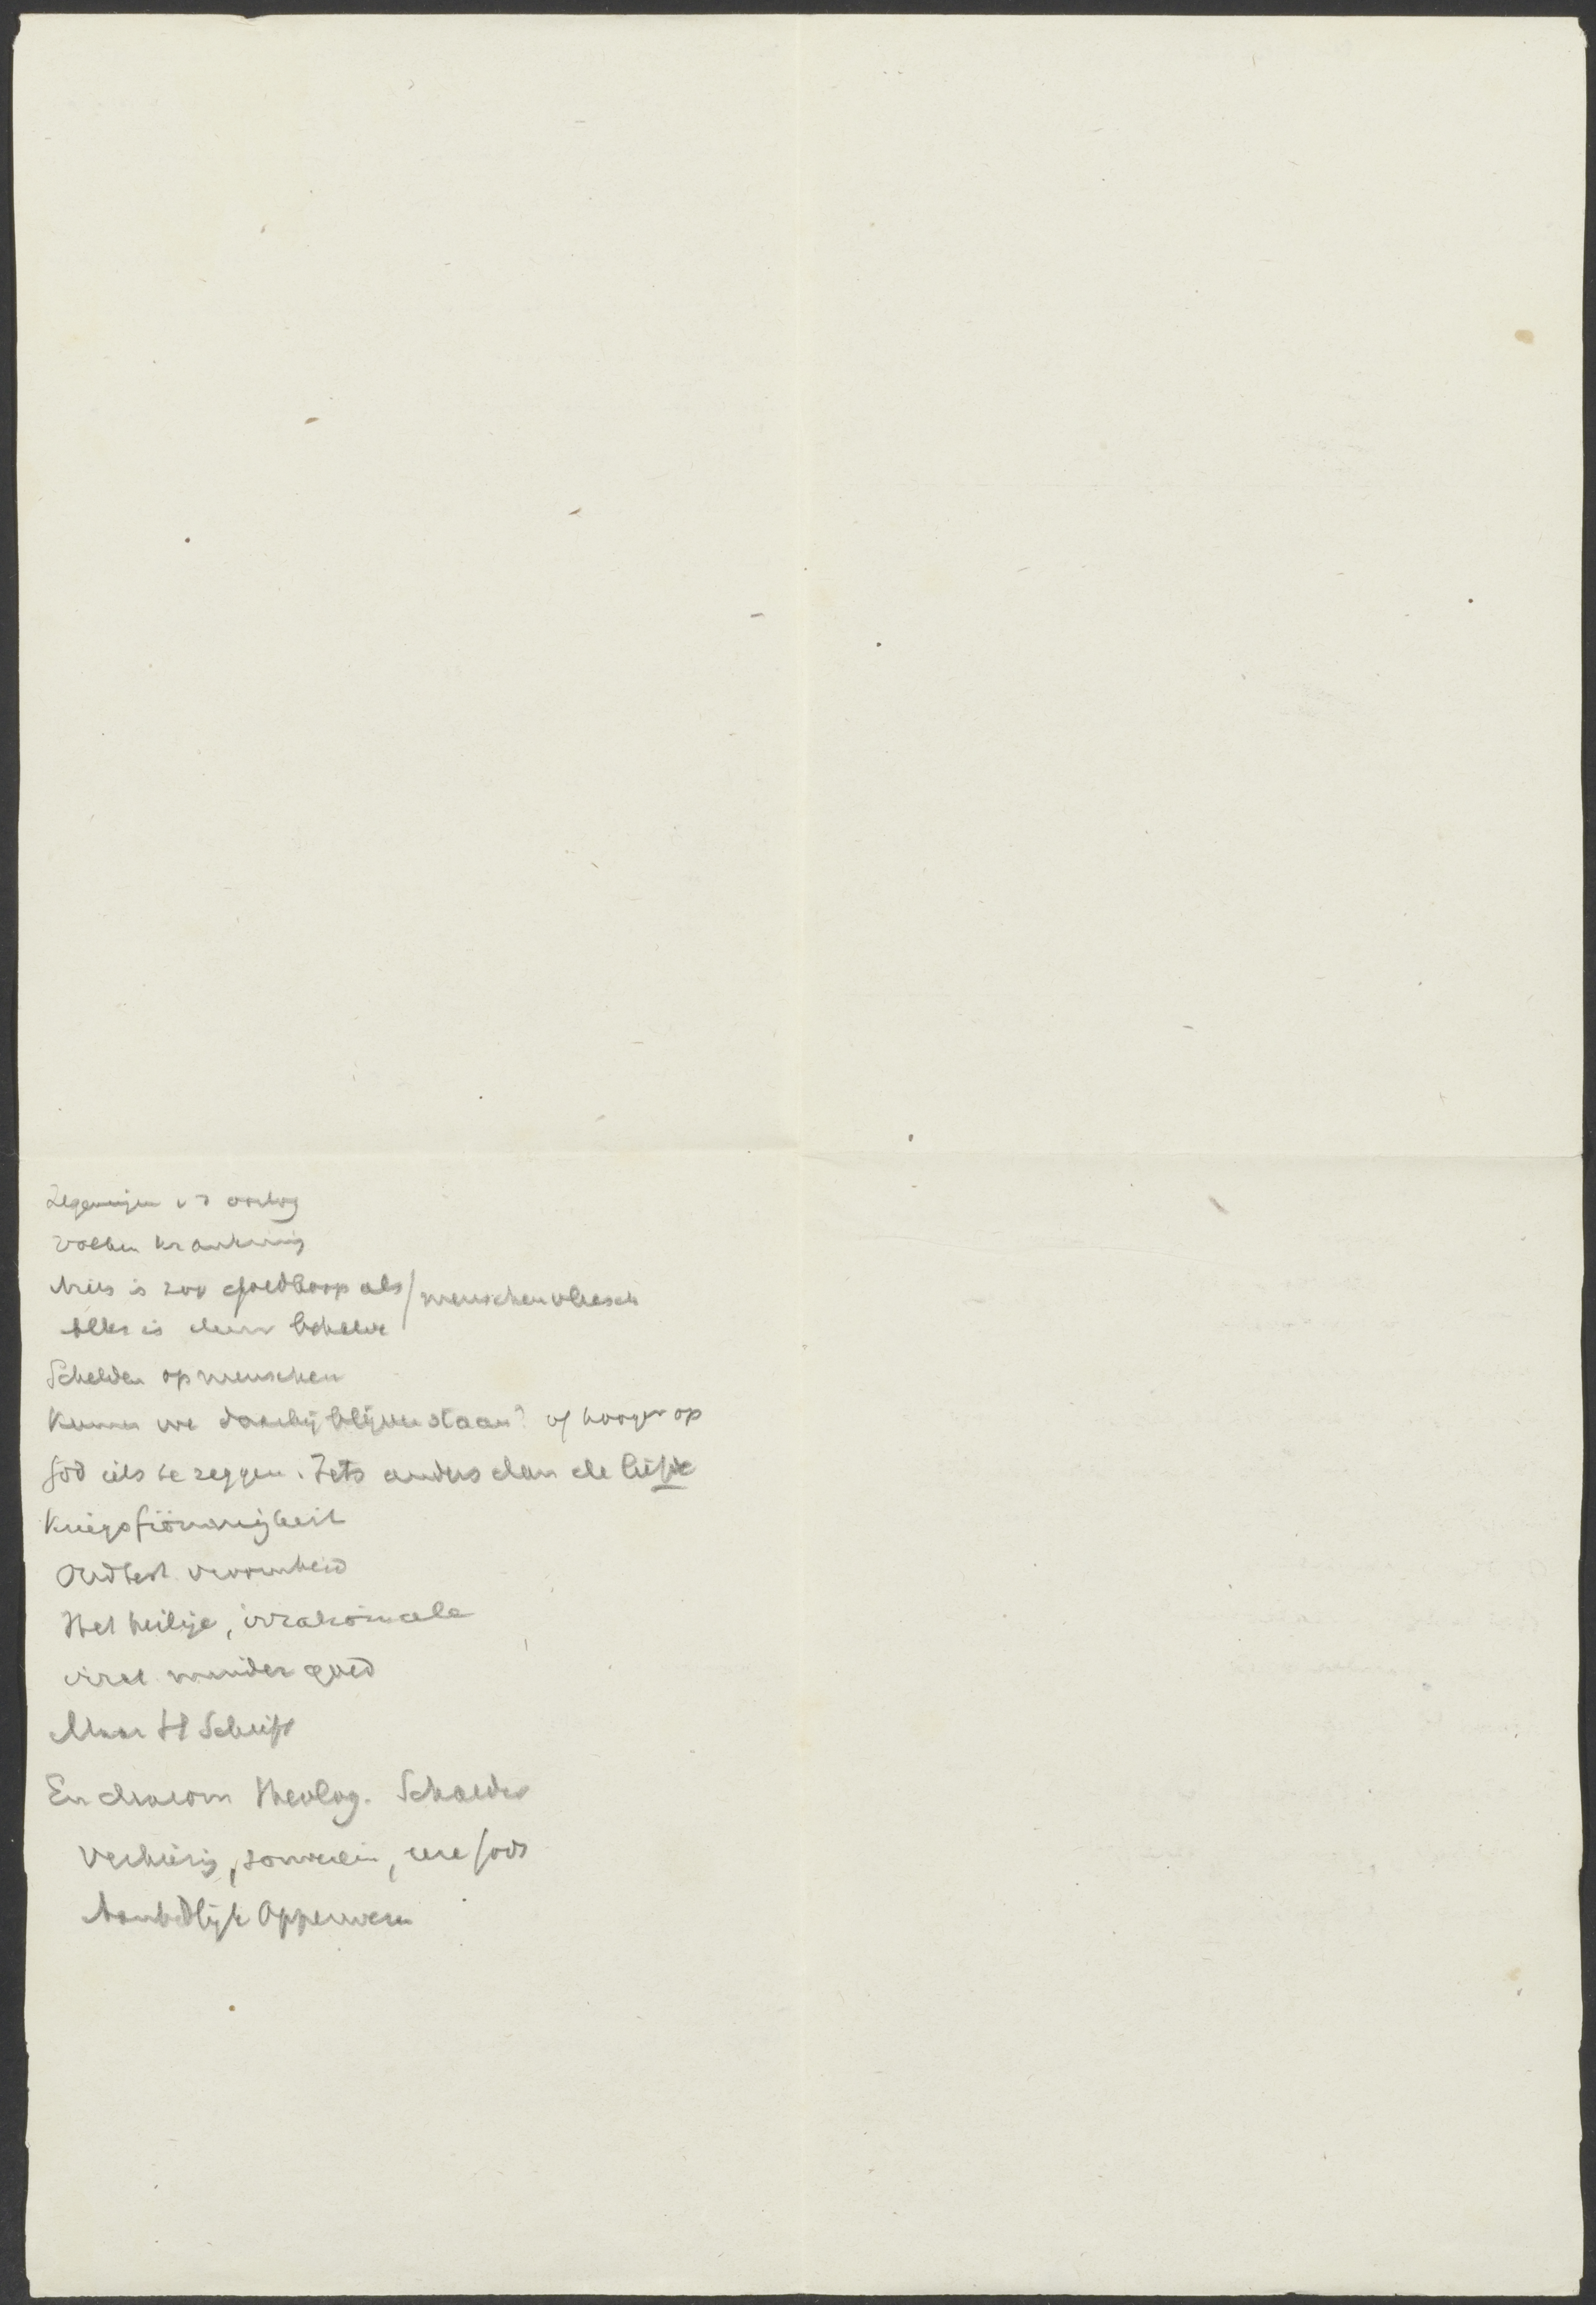 Zegeningen v d oorlog
Volken kranking
Niets is zoo goedkoop als / menschenvleesch
Alles is duur behalve
Schelden op menschen
Kunnen we daarbij blijven staan? of hooger op
God iets te zeggen. Iets anders dan de liefde
Kriegsfrömmigkeit
Oudtest. vroomheid
Het heilige, irrationeele
minder goed
Maar H Schrift
En daarom theolog. Schaeder
souverein, eere Gods
Aanbidlijk Opperwezen